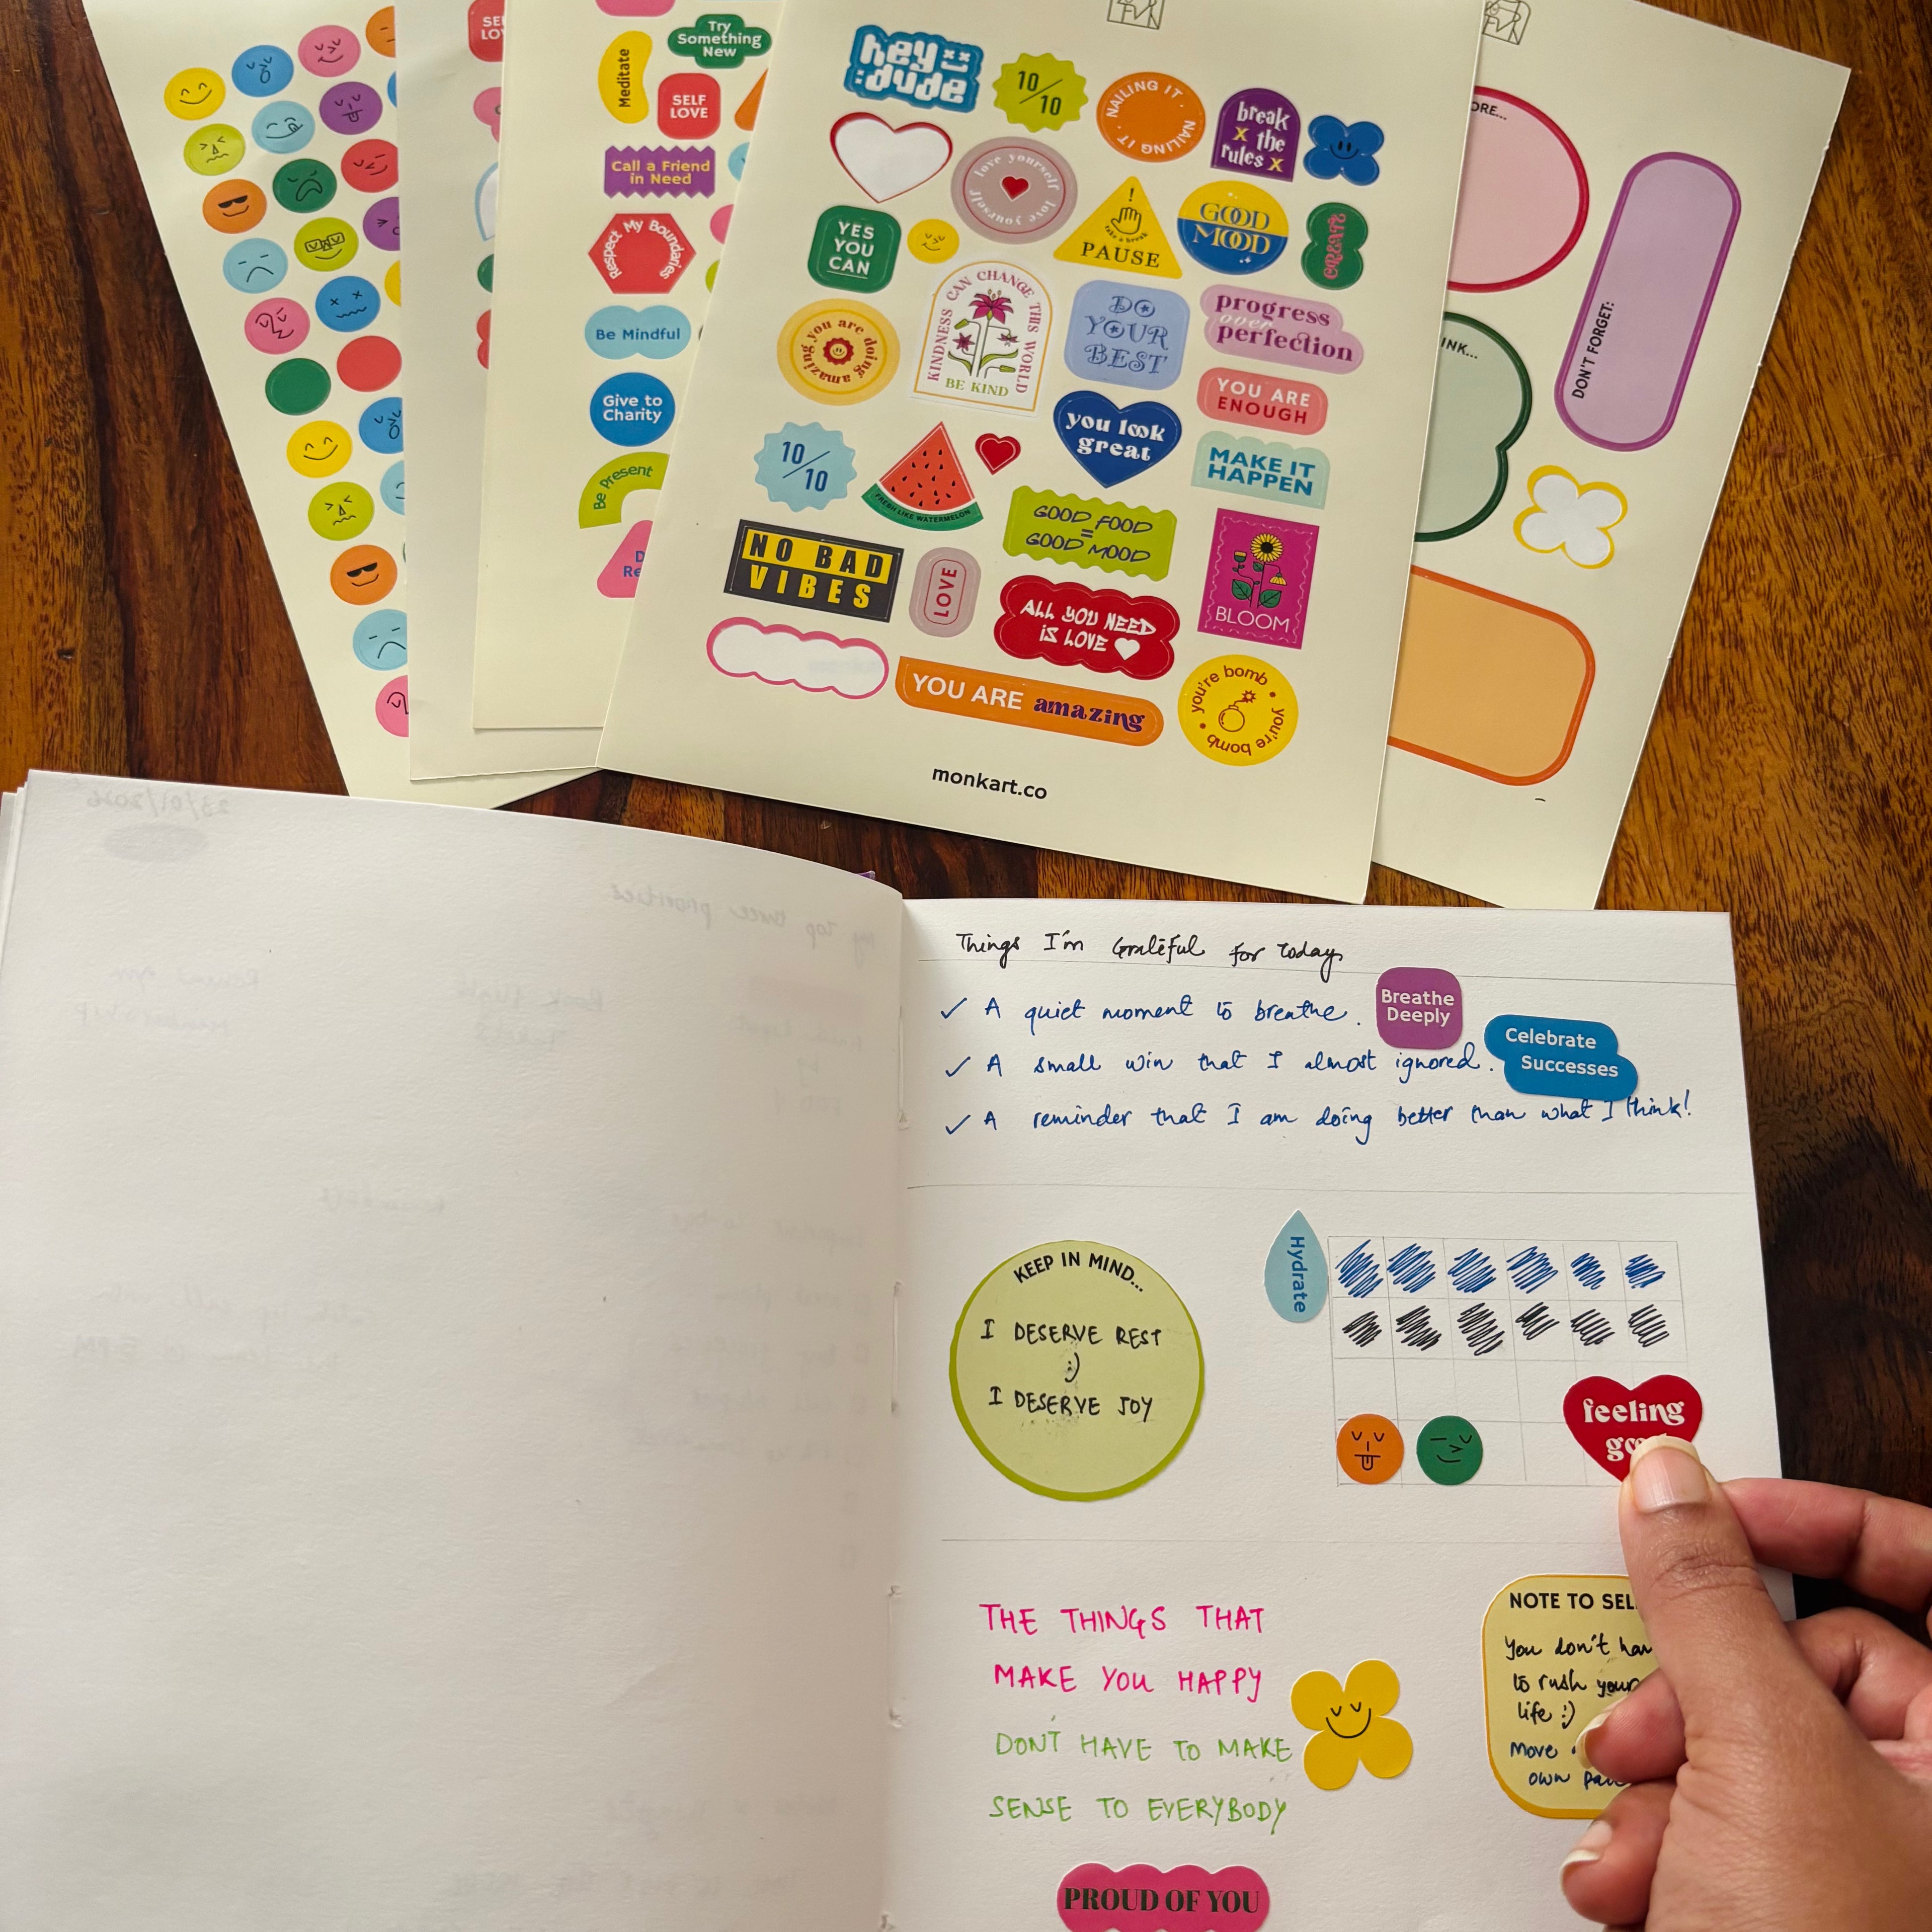 SELF LOVE
Meditate
Try
Something
New
SELF
LOVE
Call a Friend
in Need
Respect My Boundaries
Be Mindful
Give to
Charity
Be Present
hey
dude
10/10
NAILING IT · NAILING IT ·
break
x the
rules x
love yourself love yourself
YES
YOU
CAN
!
take a break
PAUSE
GOOD
MOOD
CREATE
you are doing amazing
KINDNESS CAN CHANGE THIS WORLD
BE KIND
DO
YOUR
BEST
progress
over
perfection
YOU ARE
ENOUGH
10/10
FRESH LIKE WATERMELON
you look
great
MAKE IT
HAPPEN
NO BAD
VIBES
LOVE
GOOD FOOD
=
GOOD MOOD
ALL YOU NEED
IS LOVE
BLOOM
YOU ARE amazing
you're bomb • you're bomb •
monkart.co
DON'T FORGET:
Things I'm Grateful for today
✓ A quiet moment to breathe.
Breathe
Deeply
✓ A small win that I almost ignored.
Celebrate
Successes
✓ A reminder that I am doing better than what I think!
KEEP IN MIND...
I DESERVE REST
:)
I DESERVE JOY
Hydrate
feeling
THE THINGS THAT
MAKE YOU HAPPY
DON'T HAVE TO MAKE
SENSE TO EVERYBODY
NOTE TO SEL
You don't hav
to rush your
life :)
Move
own
PROUD OF YOU